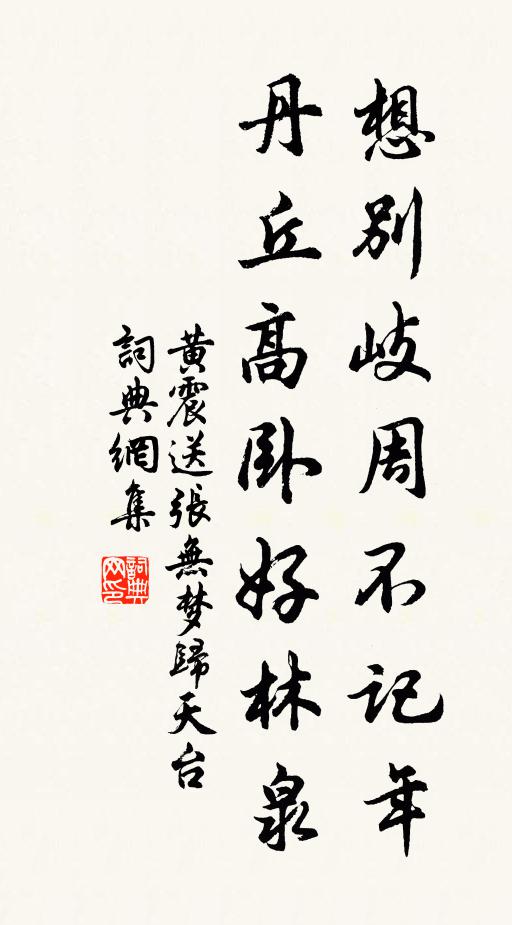 想別岐周不记年
丹丘高卧好林泉
黄震送張無梦歸天台
詞典網集
詞典网印